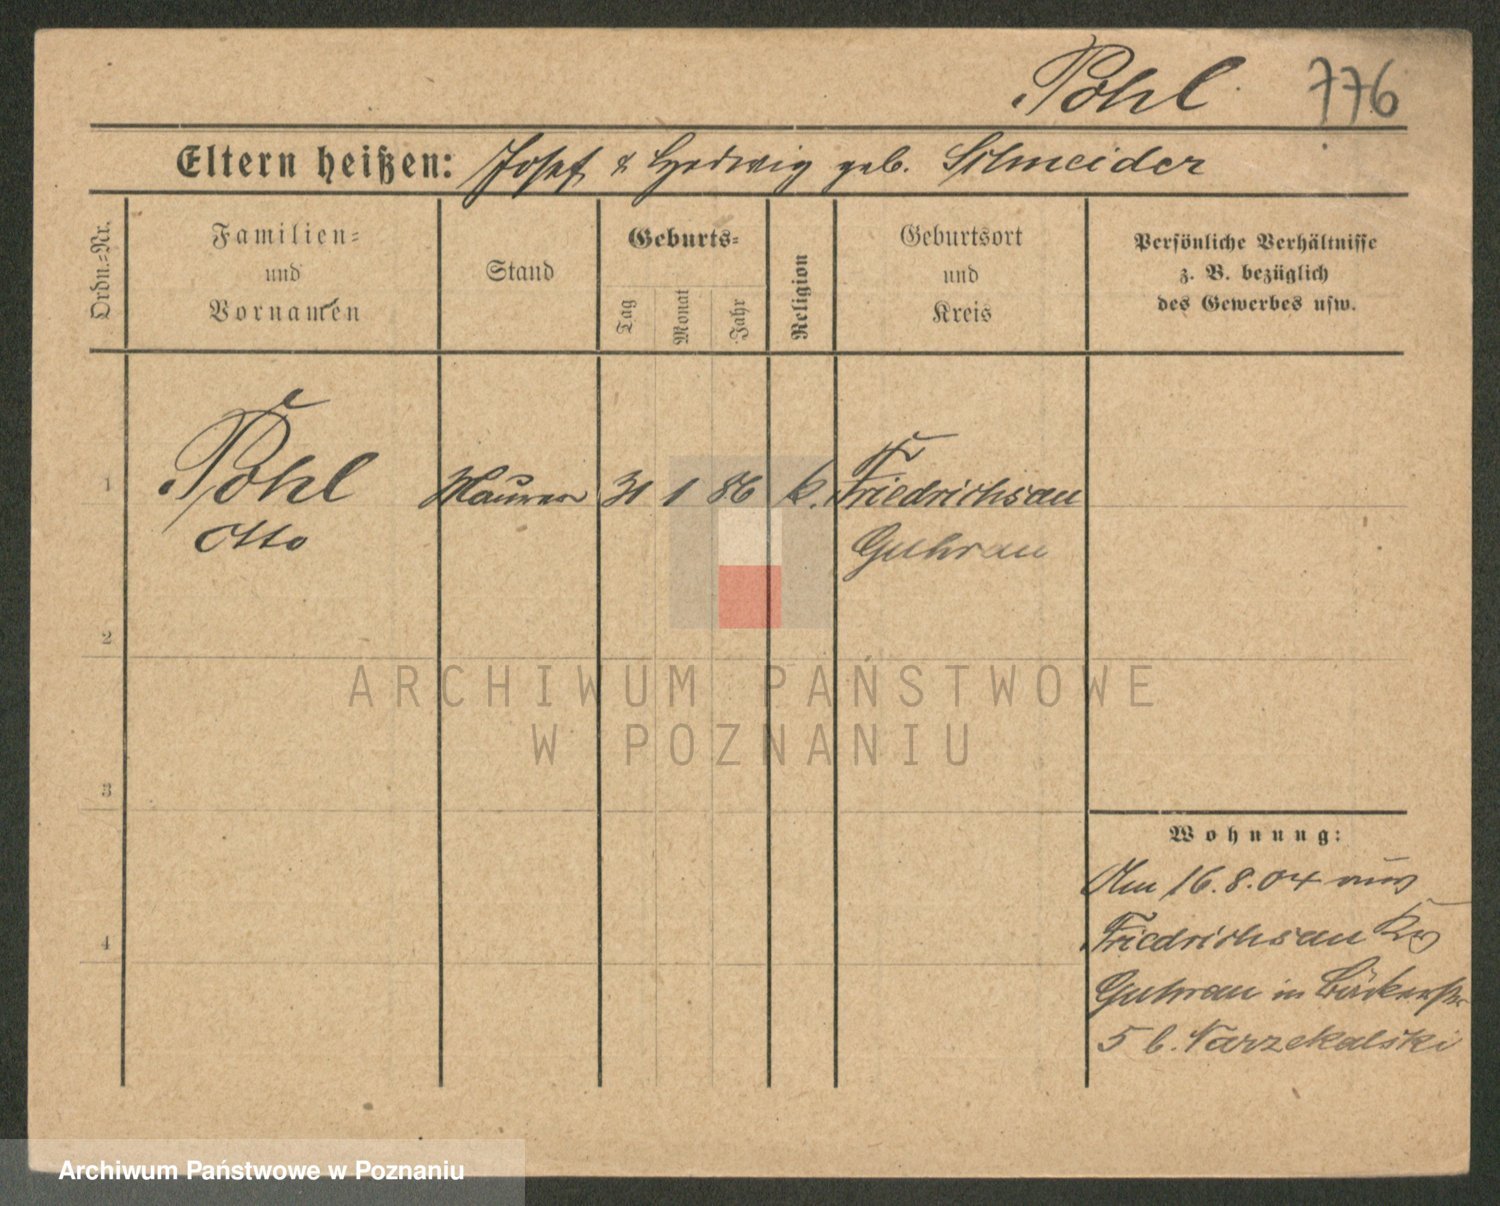 Pohl 776
Eltern heißen: Josef & Hedwig geb. Schneider
Ordn.-Nr.
Familien-
und
Vornamen
Stand
Geburts-
Tag
Monat
Jahr
Religion
Geburtsort
und
Kreis
Persönliche Verhältnisse
z. B. bezüglich
des Gewerbes usw.
1 Pohl Maurer 31 1 86 k. Friedrichsau
Otto Guhrau
2
3
4
Wohnung:
Am 16.8.04 aus
Friedrichsau Krs
Guhrau in Bäckerstr
5 b. Narzekalski
ARCHIWUM PAŃSTWOWE
W POZNANIU
Archiwum Państwowe w Poznaniu